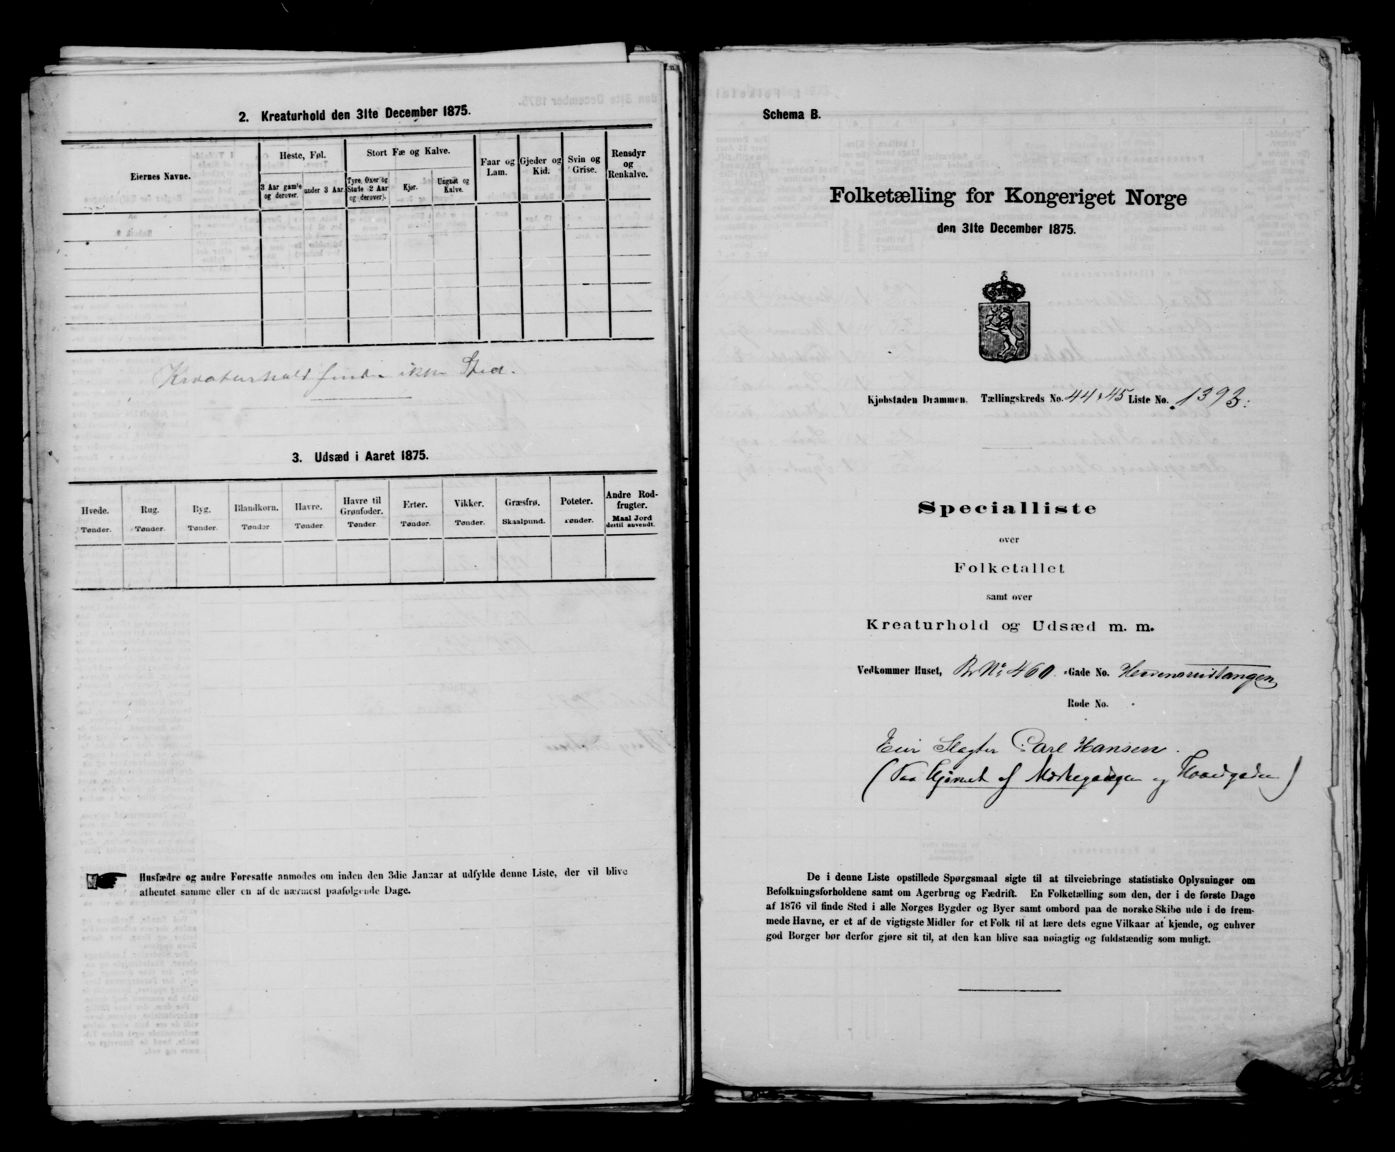 2. Kreaturhold den 31te December 1875.
Eiernes Navne.
Heste, Føl.
3 Aar gamle og derover.
under 3 Aar.
Stort Fæ og Kalve.
Tyre, Oxer og Stude (2 Aar og derover).
Kjør.
Ungnöt og Kalve.
Faar og Lam.
Gjeder og Kid.
Svin og Grise.
Rensdyr og Renkalve.
Kreaturhold finde ikke Sted.
3. Udsæd i Aaret 1875.
Hvede. Rug. Byg. Blandkorn. Havre. Havre til Grønfoder. Erter. Vikker. Græsfrø. Poteter. Andre Rodfrugter.
Tønder. Tønder. Tønder. Tønder Tønder. Tønder. Tønder. Tønder. Skaalpund. Tønder. Maal Jord dertil anvendt.
Husfædre og andre Foresatte anmodes om inden den 3die Januar at udfylde denne Liste, der vil blive
afhentet samme eller en af de nærmest paafølgende Dage.
Schema B.
Folketælling for Kongeriget Norge
den 31te December 1875.
Kjøbstaden Drammen. Tællingskreds No. 44 & 45 Liste No. 1393.
Specialliste
over
Folketallet
samt over
Kreaturhold og Udsæd m. m.
Vedkommer Huset, Br No 460. Gade No.
Rode No.
Eier Slagter Carl Hansen.
(Paa Hjørnet af og Havnegaden)
De i denne Liste opstillede Spørgsmaal sigte til at tilveiebringe statistiske Oplysninger om
Befolkningsforholdene samt om Agerbrug og Fædrift. En Folketælling som den, der i de første Dage
af 1876 vil finde Sted i alle Norges Bygder og Byer samt ombord paa de norske Skibe ude i de frem-
mede Havne, er et af de vigtigste Midler for et Folk til at lære dets egne Vilkaar at kjende, og enhver
god Borger bør derfor gjøre sit til, at den kan blive saa nøiagtig og fuldstændig som muligt.